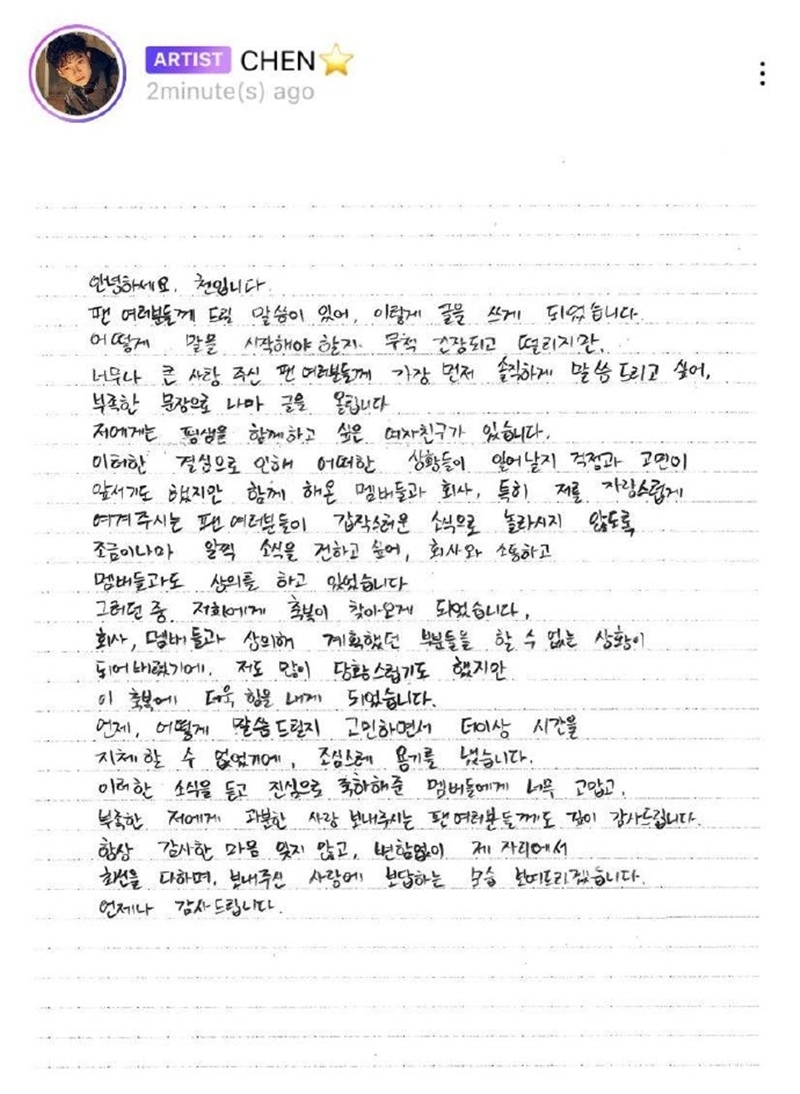 ARTIST CHEN⭐
2minute(s) ago
안녕하세요. 첸입니다.
팬 여러분들께 드릴 말씀이 있어, 이렇게 글을 쓰게 되었습니다.
어떻게 말을 시작해야 할지 무척 긴장되고 떨리지만,
너무나 큰 사랑 주신 팬 여러분들께 가장 먼저 솔직하게 말씀 드리고 싶어,
부족한 문장으로 나마 글을 올립니다
저에게는 평생을 함께하고 싶은 여자친구가 있습니다.
이러한 결심으로 인해 어떠한 상황들이 일어날지 걱정과 고민이
앞서기도 했지만 함께 해온 멤버들과 회사, 특히 저를 자랑스럽게
여겨주시는 팬 여러분들이 갑작스러운 소식으로 놀라시지 않도록
조금이나마 일찍 소식을 전하고 싶어, 회사와 소통하고
멤버들과도 상의를 하고 있었습니다
그러던 중 저희에게 축복이 찾아오게 되었습니다,
회사, 멤버들과 상의해 계획했던 부분들을 할 수 없는 상황이
되어버렸기에, 저도 많이 당황스럽기도 했지만
이 축복에 더욱 힘을 내게 되었습니다.
언제, 어떻게 말씀드릴지 고민하면서 더이상 시간을
지체할 수 없었기에, 조심스레 용기를 냈습니다.
이러한 소식을 듣고 진심으로 축하해준 멤버들에게 너무 고맙고,
부족한 저에게 과분한 사랑 보내주시는 팬 여러분들께도 깊이 감사드립니다.
항상 감사한 마음 잊지 않고, 변함없이 제 자리에서
최선을 다하며, 보내주신 사랑에 보답하는 모습 보여드리겠습니다.
언제나 감사드립니다.